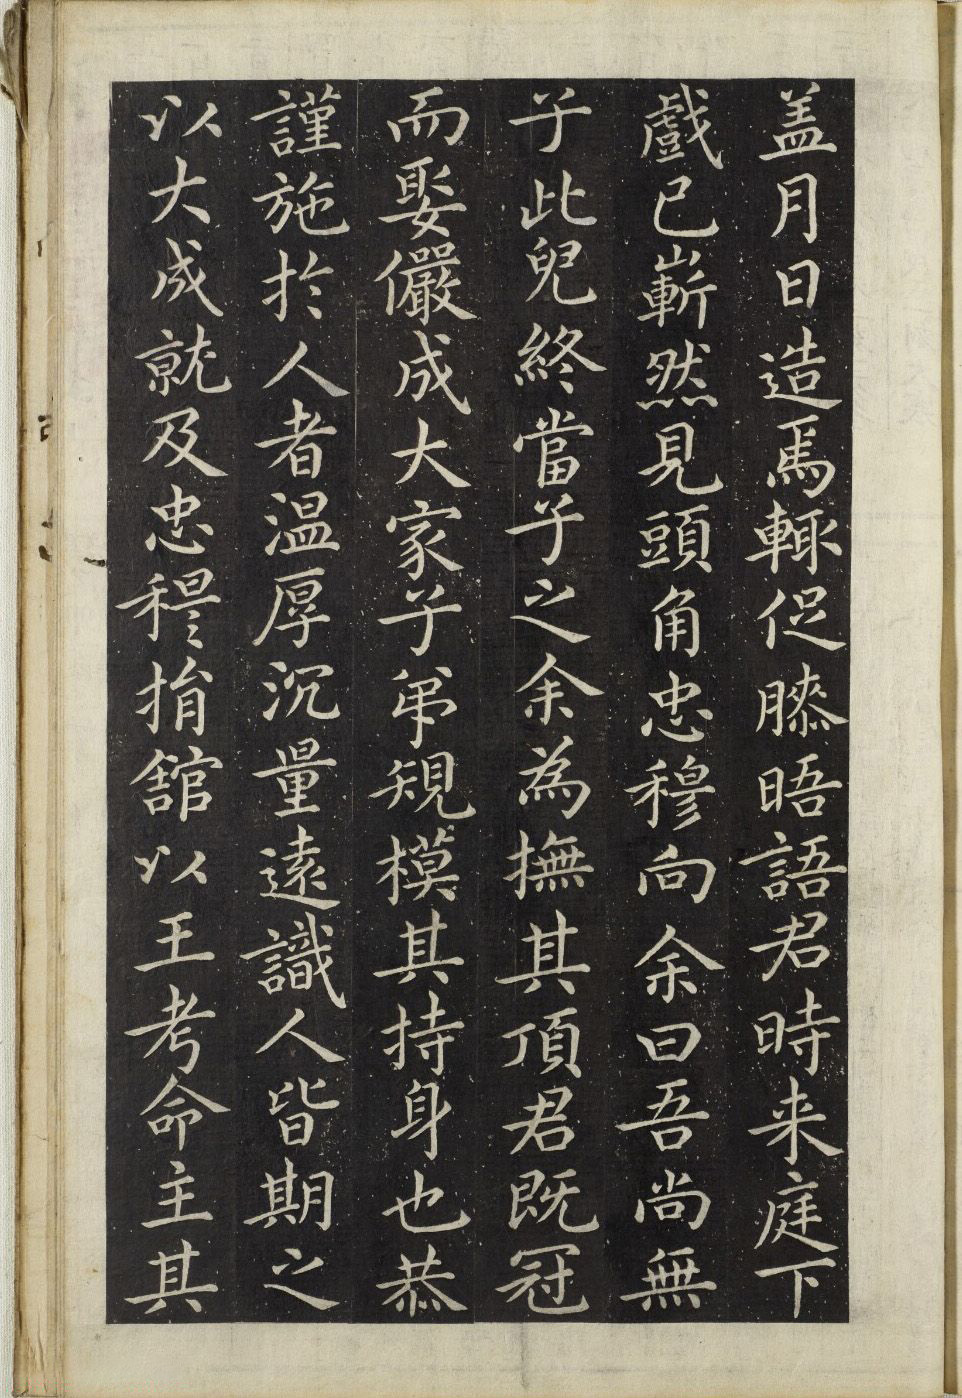 盖月日造焉輙促膝晤語君時来庭下
戲已嶄然見頭角忠穆向余曰吾尚無
子此兒終當子之余為撫其頂君既冠
而娶儼成大家子弟規模其持身也恭
謹施於人者温厚沉量遠識人皆期之
以大成就及忠穆捐舘以王考命主其